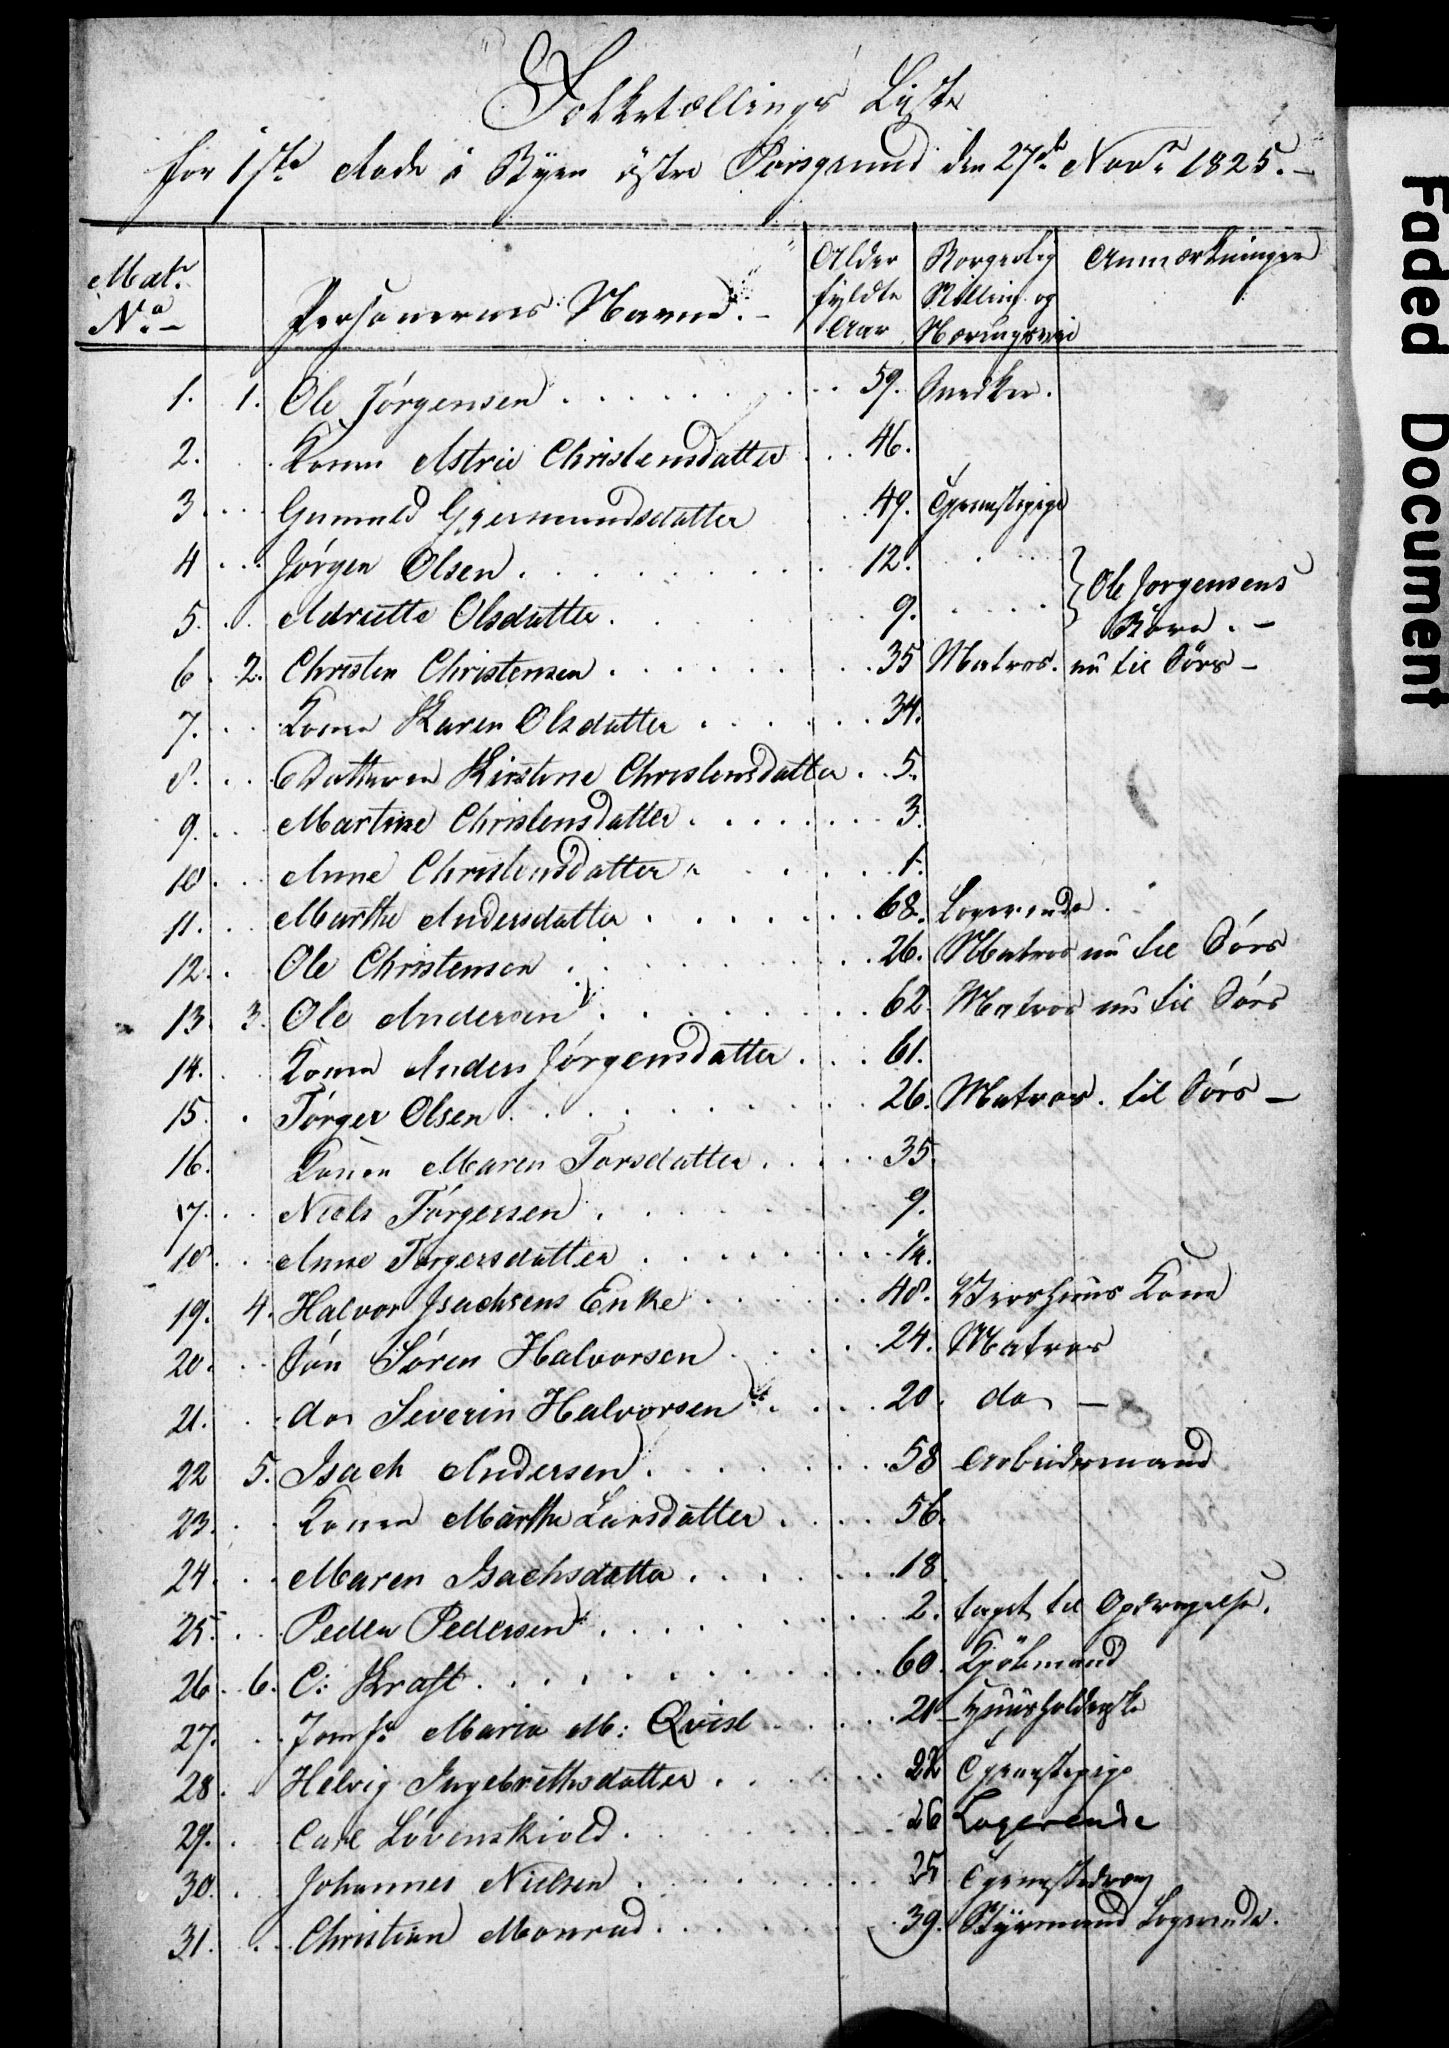 Folketællings Liste
for 1ste Rode i Byen östre Porsgrund den 27de Novr 1825.-
Matr. No- Personernes Navne.- Alder fyldte Aar Borgerlig Stilling og Næringsvei Anmærkninger
1. 1. Ole Jörgensen 59. Snedker.
2. Konen Astrie Christensdatter 46.
3 Gunuld Gjermundsdatter 49. Tjenestepige
4 Jörgen Olsen 12.
} Ole Jörgensens
5. Adriette Olsdatter 9.
Börn.-
6 2. Christen Christensen 35 Matros. nu til Söes-
7. Konen Karen Olsdatter 34.
8. Datteren Kirstine Christensdatter 5.
9. Martine Christensdatter 3.
10 Anne Christensdatter 1.
11. Marthe Andersdatter 68. Logerende.
12. Ole Christensen 26. Matros nu til Söes
13. 3. Ole Andersen 62. Matros nu til Söes
14. Konen Anders Jörgensdatter 61.
15. Törger Olsen 26. Matros. til Söes-
16. Konen Maren Torsdatter 35.
17. Niels Törgersen 9.
18. Anne Törgersdatter 1/4.
19. 4. Halvor Isachsens Enke 48. Vertshuus Kone
20. Sön Sören Halvorsen 24. Matros
21. do Severin Halvorsen 20. do -
22 5. Isach Andersen 58 Arbeidsmand
23. Konen Marthe Larsdatter 56.
24. Maren Isachsdatter 18
25. Peder Pedersen 2. taget til Opdragelse.
26 6. C: Kraft 60. Kjöbmand
27. Jomfr Maria M: Qvist 21 Huusholderske
28. Helvig Ingebrethsdatter 22 Tjenestepige
29. Carl Lövenskiold 26 Logerende
30. Johannes Nielsen 25 Tjenestedreng
31. Christian Monrad 39. Styrmand Logerende.
Faded Document